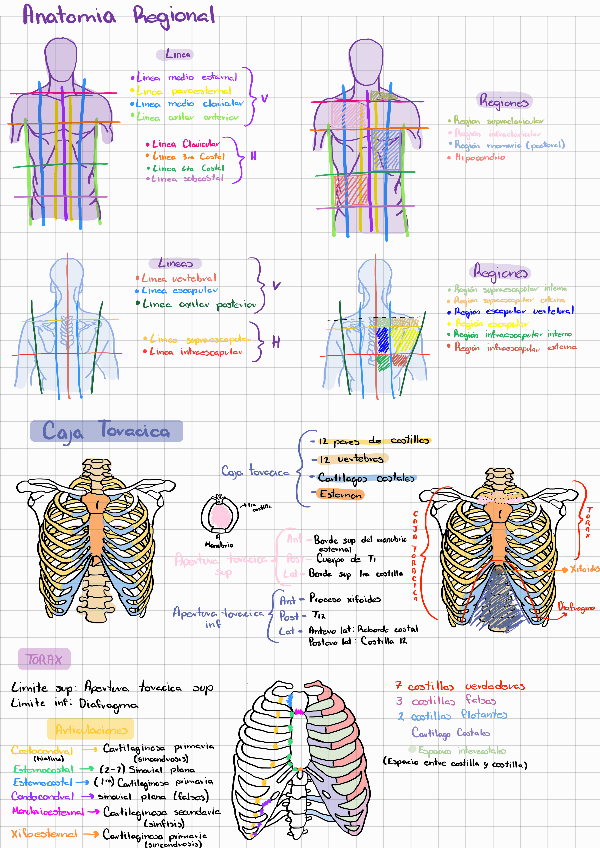 Anatomia Regional
Linea
• Linea medio esternal
• Linea paraesternal
• Linea medio clavicular
• Linea axilar anterior
V
• Linea Clavicular
• Linea 3ra Costal
• Linea 6ta Costal
• Linea subcostal
H
Regiones
• Región supraclavicular
• Región infraclavicular
• Región mamaria (pectoral)
• Hipocondrio
Lineas
• Linea vertebral
• Linea escapular
• Linea axilar posterior
V
• Linea supraescapular
• Linea infraescapular
H
Regiones
• Región supraescapular interna
• Región supraescapular externa
• Región escapular vertebral
• Región escapular
• Región infraescapular interna
• Región infraescapular externa
Caja Toracica
Caja toracica
- 12 pares de costillas
- 12 vertebras
- Cartilagos costales
- Esternon
1ra costilla
Manubrio
Apertura toracica sup
Ant - Borde sup del manubrio esternal
Post - Cuerpo de T1
Lat - Borde sup 1ra costilla
Apertura toracica inf
Ant - Proceso xifoides
Post - T12
Lat - Antero lat: Reborde costal
Postero lat: Costilla 12
CAJA TORACICA
TORAX
Xifoides
Diafragma
TORAX
Limite sup: Apertura toracica sup
Limite inf: Diafragma
Articulaciones
Costocondral → Cartilaginosa primaria
(sincondrosis)
Esternocostal → (2-7) Sinovial plana
Esternocostal → (1ra) Cartilaginosa primaria
Condocondral → sinovial plana (falsas)
Manubrioesternal → Cartilaginosa secundaria
(sinfisis)
Xifoesternal → Cartilaginosa primaria
(sincondrosis)
7 costillas verdaderas
3 costillas falsas
2 costillas flotantes
Cartilago Costales
Espacio intercostales
(Espacio entre costilla y costilla)